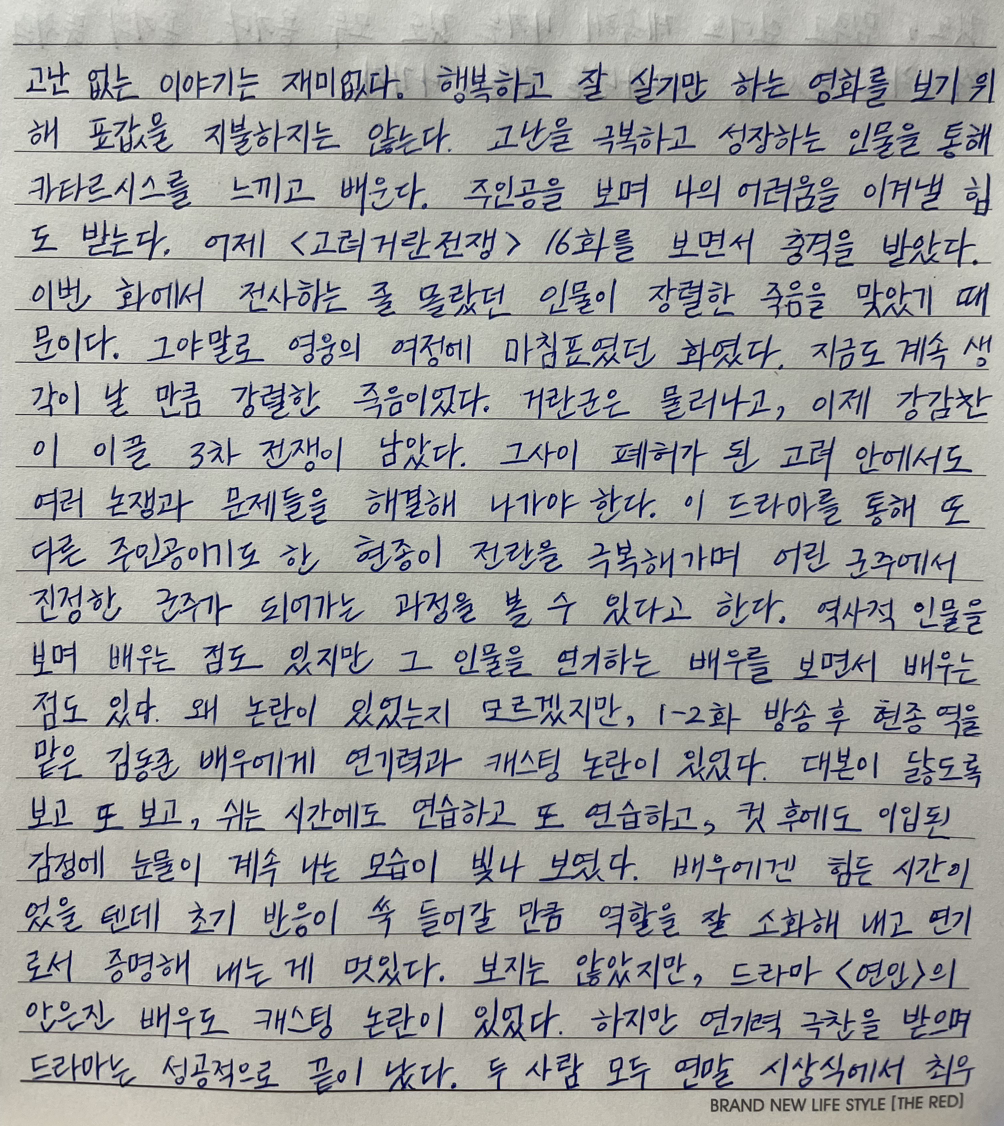 고난 없는 이야기는 재미없다. 행복하고 잘 살기만 하는 영화를 보기 위
해 표값을 지불하지는 않는다. 고난을 극복하고 성장하는 인물을 통해
카타르시스를 느끼고 배운다. 주인공을 보며 나의 어려움을 이겨낼 힘
도 받는다. 어제 <고려거란전쟁> 16화를 보면서 충격을 받았다.
이번 화에서 전사하는 줄 몰랐던 인물이 장렬한 죽음을 맞았기 때
문이다. 그야말로 영웅의 여정에 마침표였던 화였다. 지금도 계속 생
각이 날 만큼 강렬한 죽음이었다. 거란군은 물러나고, 이제 강감찬
이 이끌 3차 전쟁이 남았다. 그사이 폐허가 된 고려 안에서도
여러 논쟁과 문제들을 해결해 나가야 한다. 이 드라마를 통해 또
다른 주인공이기도 한 현종이 전란을 극복해가며 어린 군주에서
진정한 군주가 되어가는 과정을 볼 수 있다고 한다. 역사적 인물을
보며 배우는 점도 있지만 그 인물을 연기하는 배우를 보면서 배우는
점도 있다. 왜 논란이 있었는지 모르겠지만, 1-2화 방송 후 현종 역을
맡은 김동준 배우에게 연기력과 캐스팅 논란이 있었다. 대본이 닳도록
보고 또 보고, 쉬는 시간에도 연습하고 또 연습하고, 컷 후에도 이입된
감정에 눈물이 계속 나는 모습이 빛나 보였다. 배우에겐 힘든 시간이
었을 텐데 초기 반응이 쏙 들어갈 만큼 역할을 잘 소화해 내고 연기
로서 증명해 내는 게 멋있다. 보지는 않았지만, 드라마 <연인>의
안은진 배우도 캐스팅 논란이 있었다. 하지만 연기력 극찬을 받으며
드라마는 성공적으로 끝이 났다. 두 사람 모두 연말 시상식에서 최우
BRAND NEW LIFE STYLE [THE RED]